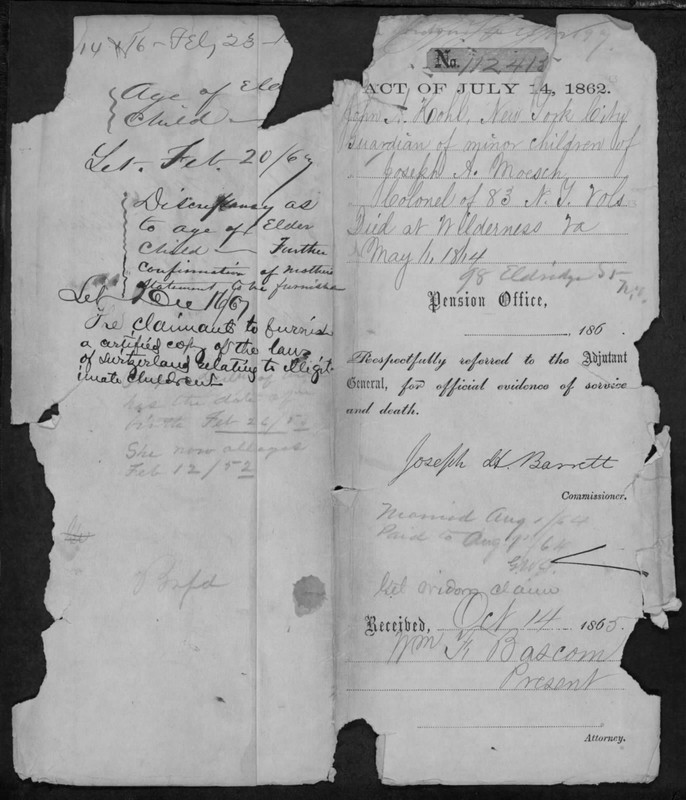 14 × 16 - Feb, 23 -
Age of Eld
Child —
Let. Feb. 20/67
Discrepancy as
to age of Elder
Child — Further
confirmation of mothers
statement to be furnished
Let Dec 16/67
The claimant to furnish
a certified copy of the law
of Switzerland relating to illegit-
imate Children
has the date of
birth Feb 26/52
She now alleges
Feb 12/52
No. 112413
ACT OF JULY 14, 1862.
John N. Hohl, New York City
Guardian of minor children of
Joseph A. Moesch,
Colonel of 83 N.Y. Vols
Died at Wilderness Va
May 6, 1864
98 Eldridge St
N.Y.
Pension Office,
186 .
Respectfully referred to the Adjutant
General, for official evidence of service
and death.
Joseph H. Barrett
Commissioner.
Married Aug /64
Paid to Aug /64
widows claim
Received, Oct 14 1865.
Wm F. Bascom
Present
Attorney.